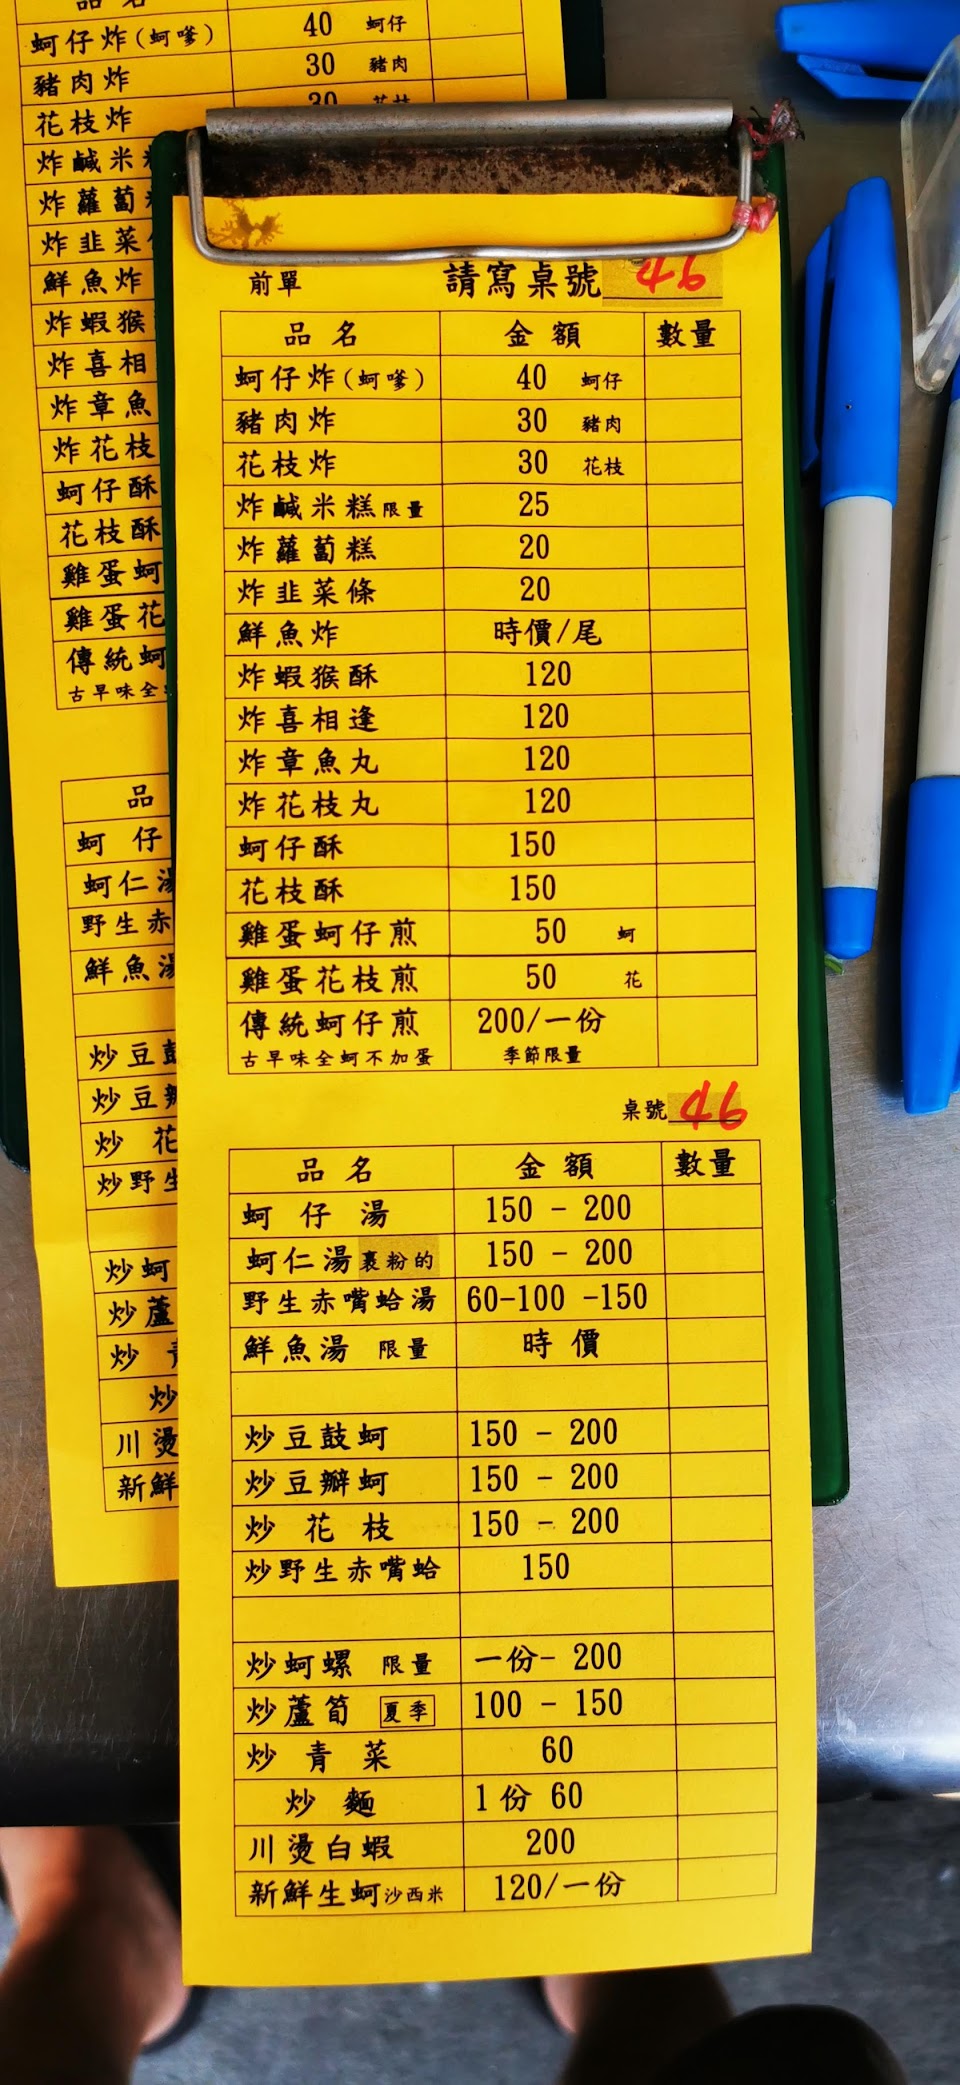 品名
蚵仔炸(蚵嗲) 40 蚵仔
豬肉炸 30 豬肉
花枝炸 30 花枝
炸鹹米
炸蘿蔔
炸韭菜
鮮魚炸
炸蝦猴
炸喜相
炸章魚
炸花枝
蚵仔酥
花枝酥
雞蛋蚵
雞蛋花
傳統蚵
古早味全
品
蚵仔
蚵仁湯
野生赤
鮮魚湯
炒豆鼓
炒豆瓣
炒花
炒野生
炒蚵
炒蘆
炒青
炒
川燙
新鮮
前單 請寫桌號 46
品名 金額 數量
蚵仔炸(蚵嗲) 40 蚵仔
豬肉炸 30 豬肉
花枝炸 30 花枝
炸鹹米糕限量 25
炸蘿蔔糕 20
炸韭菜條 20
鮮魚炸 時價/尾
炸蝦猴酥 120
炸喜相逢 120
炸章魚丸 120
炸花枝丸 120
蚵仔酥 150
花枝酥 150
雞蛋蚵仔煎 50 蚵
雞蛋花枝煎 50 花
傳統蚵仔煎 200/一份
古早味全蚵不加蛋 季節限量
桌號 46
品名 金額 數量
蚵仔湯 150 - 200
蚵仁湯裹粉的 150 - 200
野生赤嘴蛤湯 60-100 -150
鮮魚湯 限量 時價
炒豆鼓蚵 150 - 200
炒豆瓣蚵 150 - 200
炒花枝 150 - 200
炒野生赤嘴蛤 150
炒蚵螺 限量 一份- 200
炒蘆筍 夏季 100 - 150
炒青菜 60
炒麵 1份 60
川燙白蝦 200
新鮮生蚵沙西米 120/一份